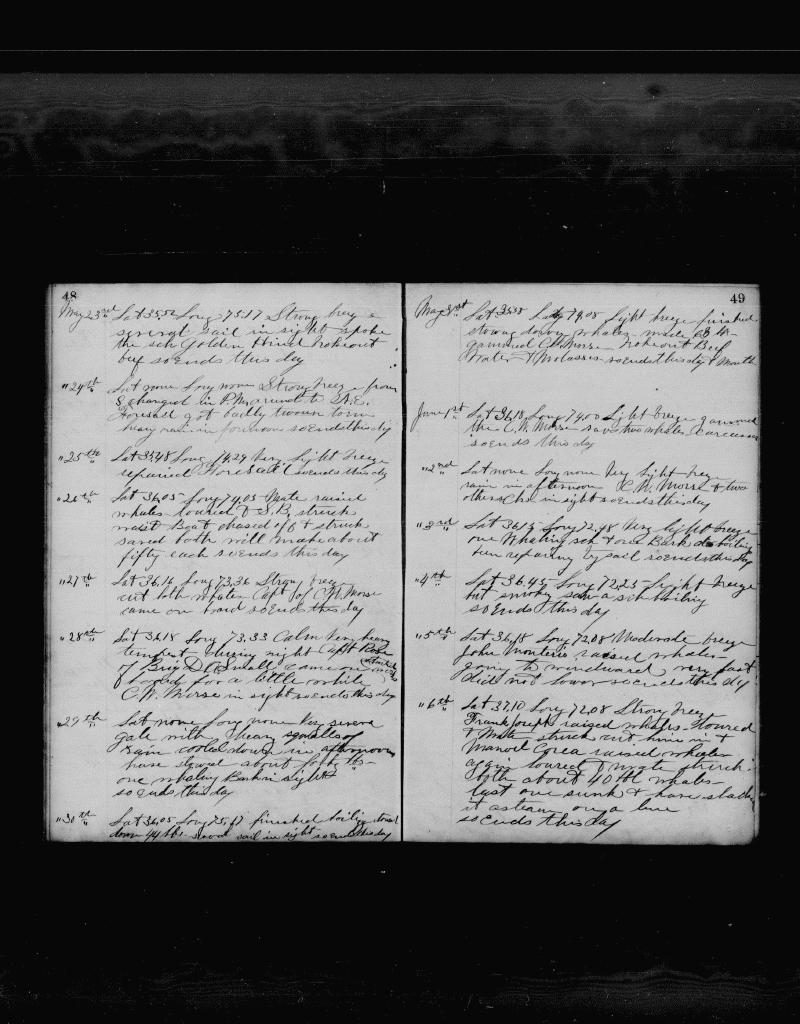 48
May 23rd Lat 35.52 Long 75.17 Strong breeze
several sail in sight spoke
the sch Golden Hind broke out
beef so ends this day
"24th Lat none Long none Strong breeze from
S changed in P.M. around to N.E.
Foresail got badly torn
heavy rain in forenoon so ends this day
"25th Lat 35.48 Long 74.29 Very light breeze
repaired Foresail so ends this day
"26th Lat 36.05 Long 74.05 Mate raised
whales lowered & S.B. struck
waist Boat chased off & struck
saved both will make about
fifty each so ends this day
"27th Lat 36.16 Long 73.36 Strong breeze
cut both whales Capt of C.W. Morse
came on board so ends this day
"28th Lat 36.18 Long 73.33 Calm very heavy
tempest during night Capt Rose
of Brig D.A. Small came on
board for a little while
C.W. Morse in sight so ends this day
"29th Lat none Long none Very severe
gale with heavy squalls of
rain cooled down in afternoon
have stowed about forty bbls
one whaling Bark in sight
so ends this day
"30th Lat 36.05 Long 75.17 finished boiling
down 44 bbls sail in sight so ends this day
49
May 31st Lat 35.58 Long 74.08 Light breeze finished
stowing down whales made
gammed C.W. Morse broke out Beef
Water & Molasses so ends this day & Month
June 1st Lat 36.18 Long 74.00 Light breeze gammed
the C.W. Morse saw two whales carcasses
so ends this day
"2nd Lat none Long none Very light breeze
rain in afternoon C.W. Morse & two
others in sight so ends this day
"3rd Lat 36.15 Long 72.48 Very light breeze
one Whaling sch & one Bark boiling
been repairing sail so ends this day
"4th Lat 36.45 Long 72.25 Light breeze
but smoky saw a sch boiling
so ends this day
"5th Lat 36.15 Long 72.08 Moderate breeze
John Monteiro raised whales
going to windward very fast
did not lower so ends this day
"6th Lat 37.10 Long 72.08 Strong breeze
Frank Joseph raised whales lowered
& Mate struck cut him in &
Manoel Corea raised whales
again lowered & mate struck
both about 40 bbl whales
last one sunk & have
it astern on a line
so ends this day